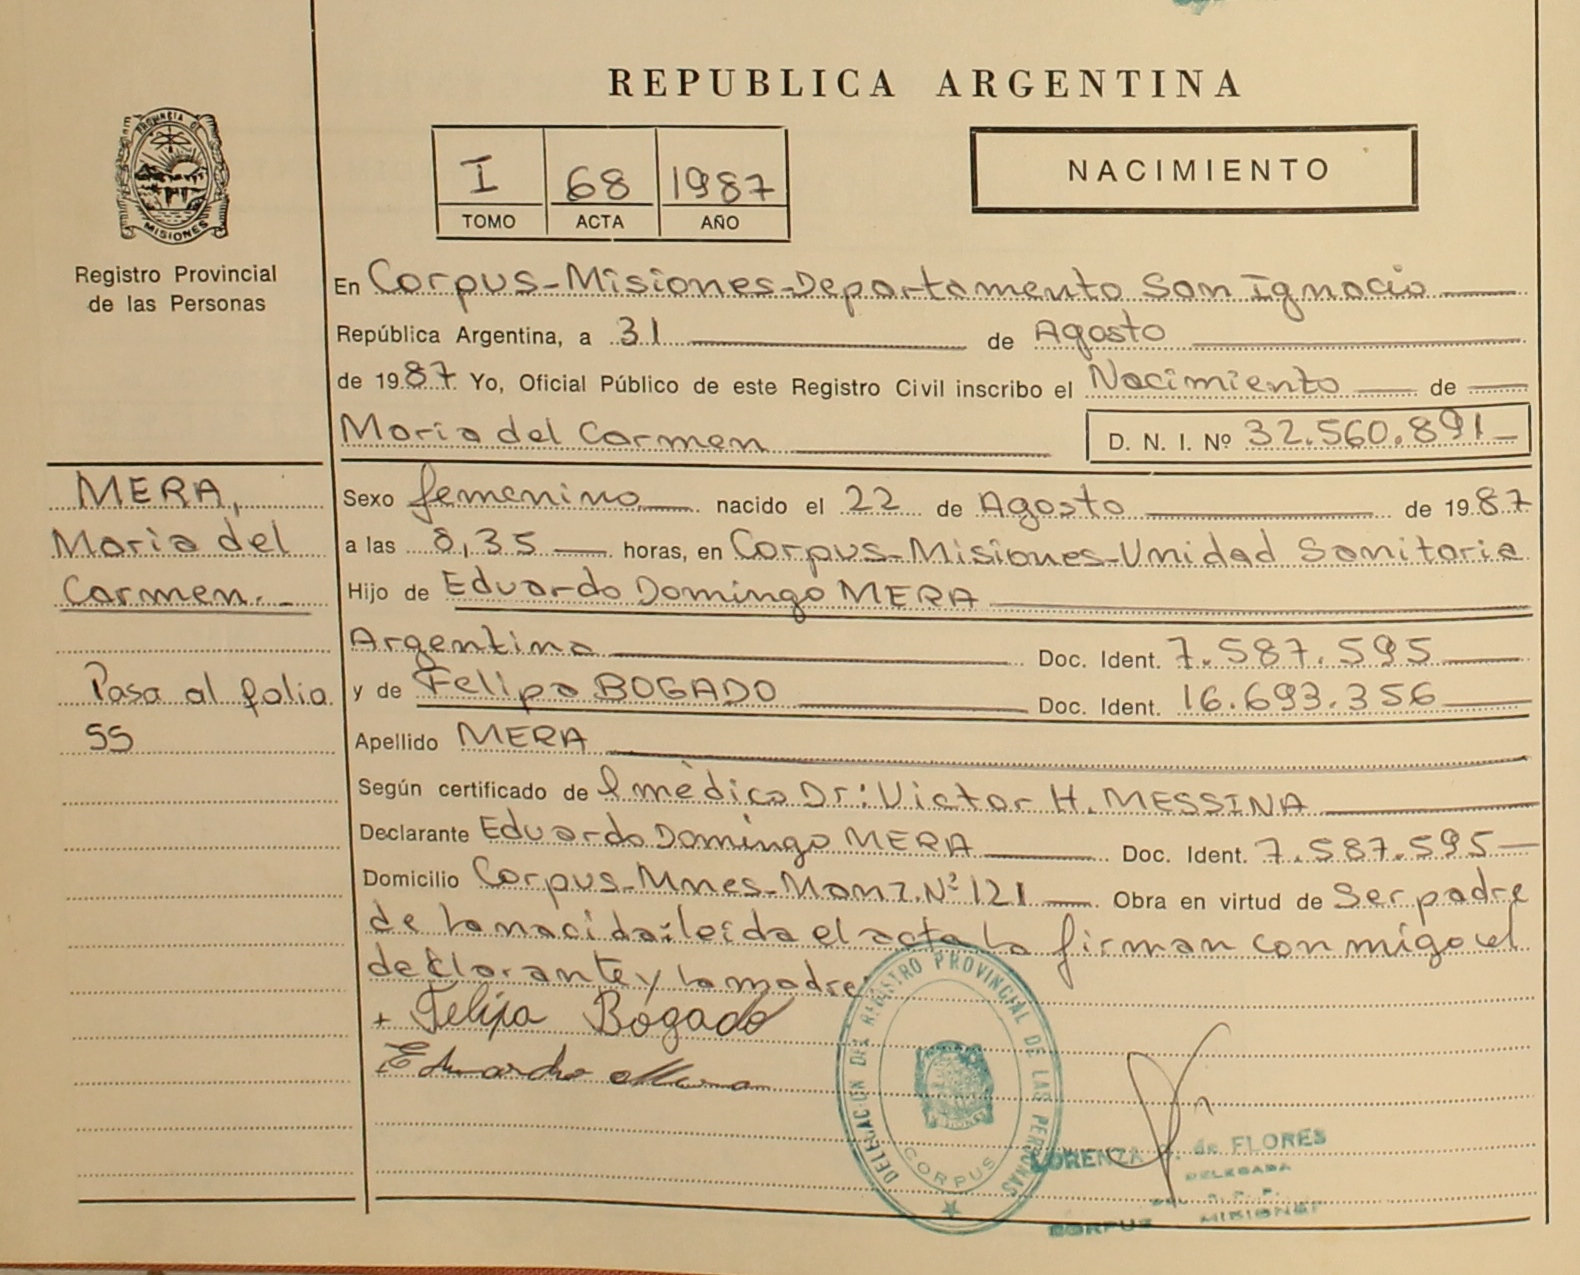 REPUBLICA ARGENTINA
PROVINCIA DE
MISIONES
Registro Provincial
de las Personas
I 68 1987
TOMO ACTA AÑO
NACIMIENTO
En Corpus-Misiones-Departamento San Ignacio
República Argentina, a 31 de Agosto
de 1987. Yo, Oficial Público de este Registro Civil inscribo el Nacimiento de
Maria del Carmen D. N. I. Nº 32.560.891
MERA,
Maria del
Carmen.
Pasa al folio
55
Sexo femenino nacido el 22 de Agosto de 1987
a las 8,35 horas, en Corpus-Misiones-Unidad Sanitaria
Hijo de Eduardo Domingo MERA
Argentino Doc. Ident. 7.587.595
y de Felipa BOGADO Doc. Ident. 16.693.356
Apellido MERA
Según certificado de l mèdico Dr: Victor H. MESSINA
Declarante Eduardo Domingo MERA Doc. Ident. 7.587.595
Domicilio Corpus-Mnes-Manz.Nº 121 Obra en virtud de Ser padre
de la nacida: leida el acta la firman conmigo el
declarante y la madre.
+ Felipa Bogado
Eduardo Mera
DELEGACION DEL REGISTRO PROVINCIAL DE LAS PERSONAS
CORPUS
LORENZA de FLORES
DELEGADA
DEL R. P. P.
CORPUS MISIONES